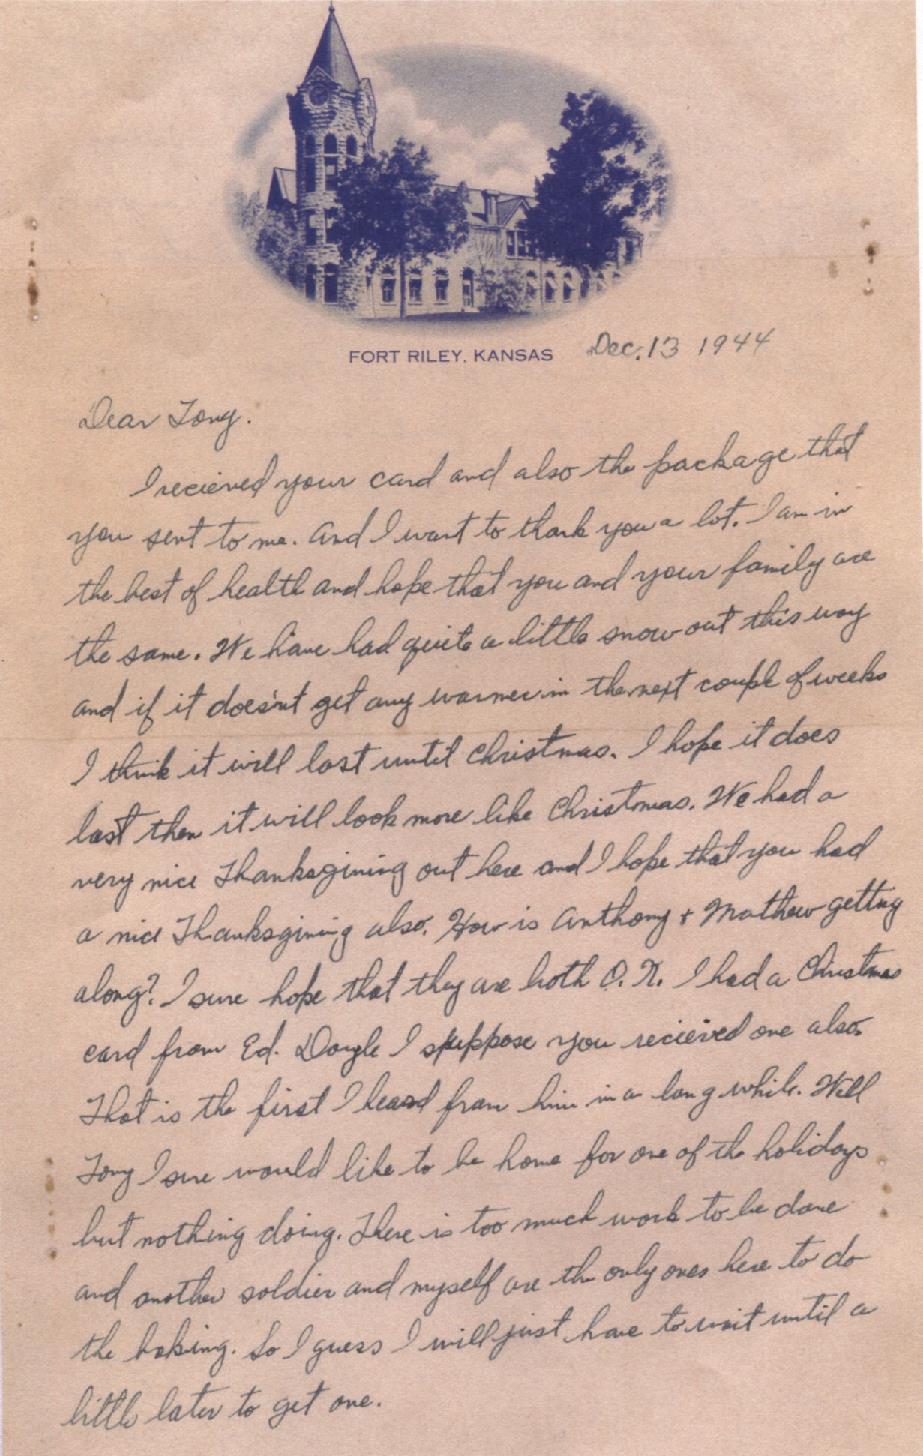 FORT RILEY, KANSAS Dec. 13 1944
Dear Tony.
I recieved your card and also the package that
you sent to me. And I want to thank you a lot. I am in
the best of health and hope that you and your family are
the same. We have had quite a little snow out this way
and if it does'nt get any warmer in the next couple of weeks
I think it will last until Christmas. I hope it does
last then it will look more like Christmas. We had a
very nice Thanksgining out here and I hope that you had
a nice Thanksgining also. How is Anthony + Mathew getting
along? I sure hope that they are both O.K. I had a Christmas
card from Ed. Doyle I suppose you recieved one also.
That is the first I heard from him in a long while. Well
Tony I sure would like to be home for one of the holidays
but nothing doing. There is too much work to be done
and another soldier and myself are the only ones here to do
the baking. So I guess I will just have to wait until a
little later to get one.